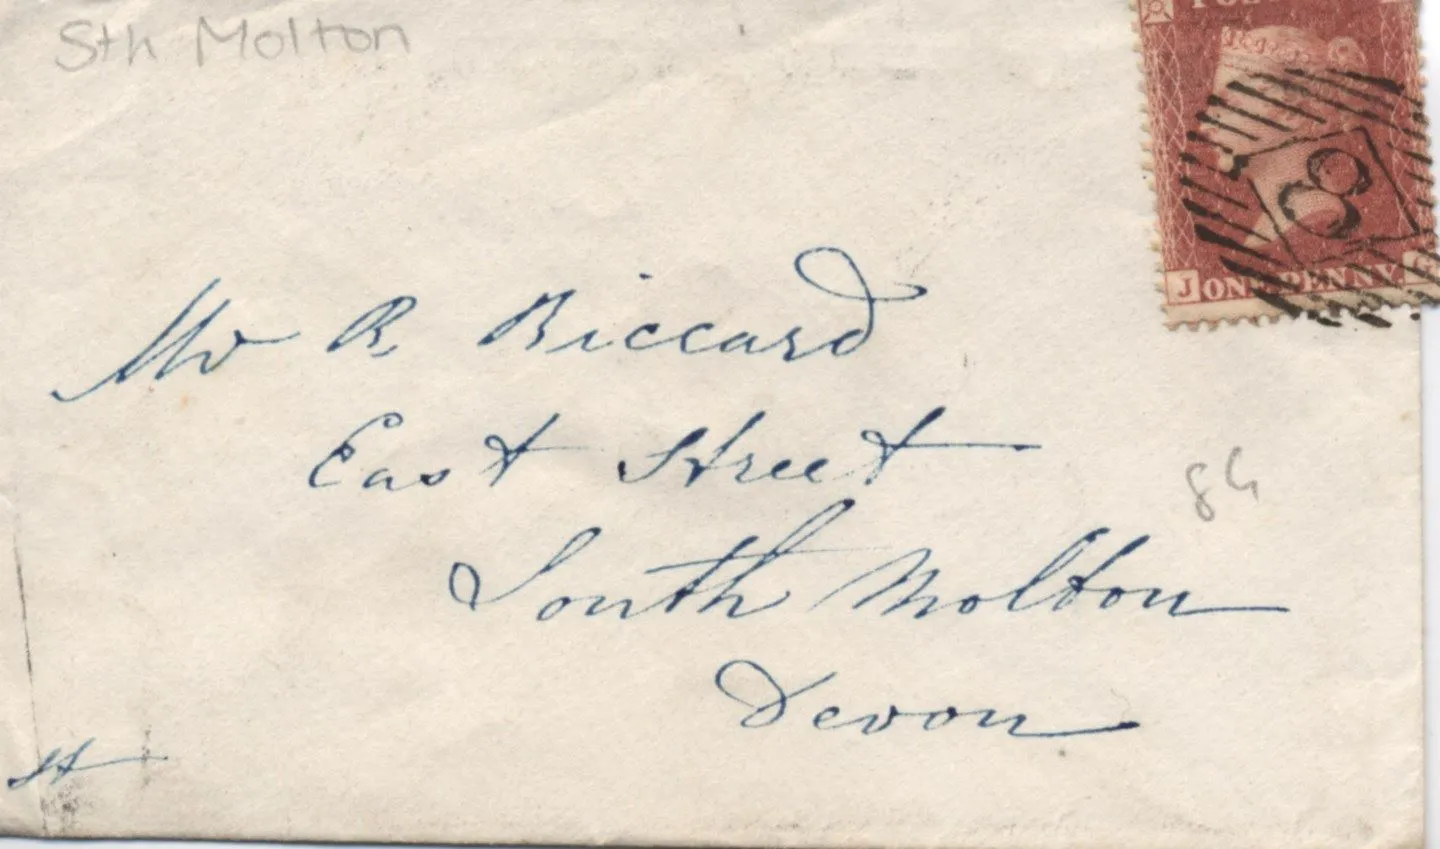 Sth Molton
ONE PENNY
J
8
Mr R. Biccard
East Street
South Molton
Devon